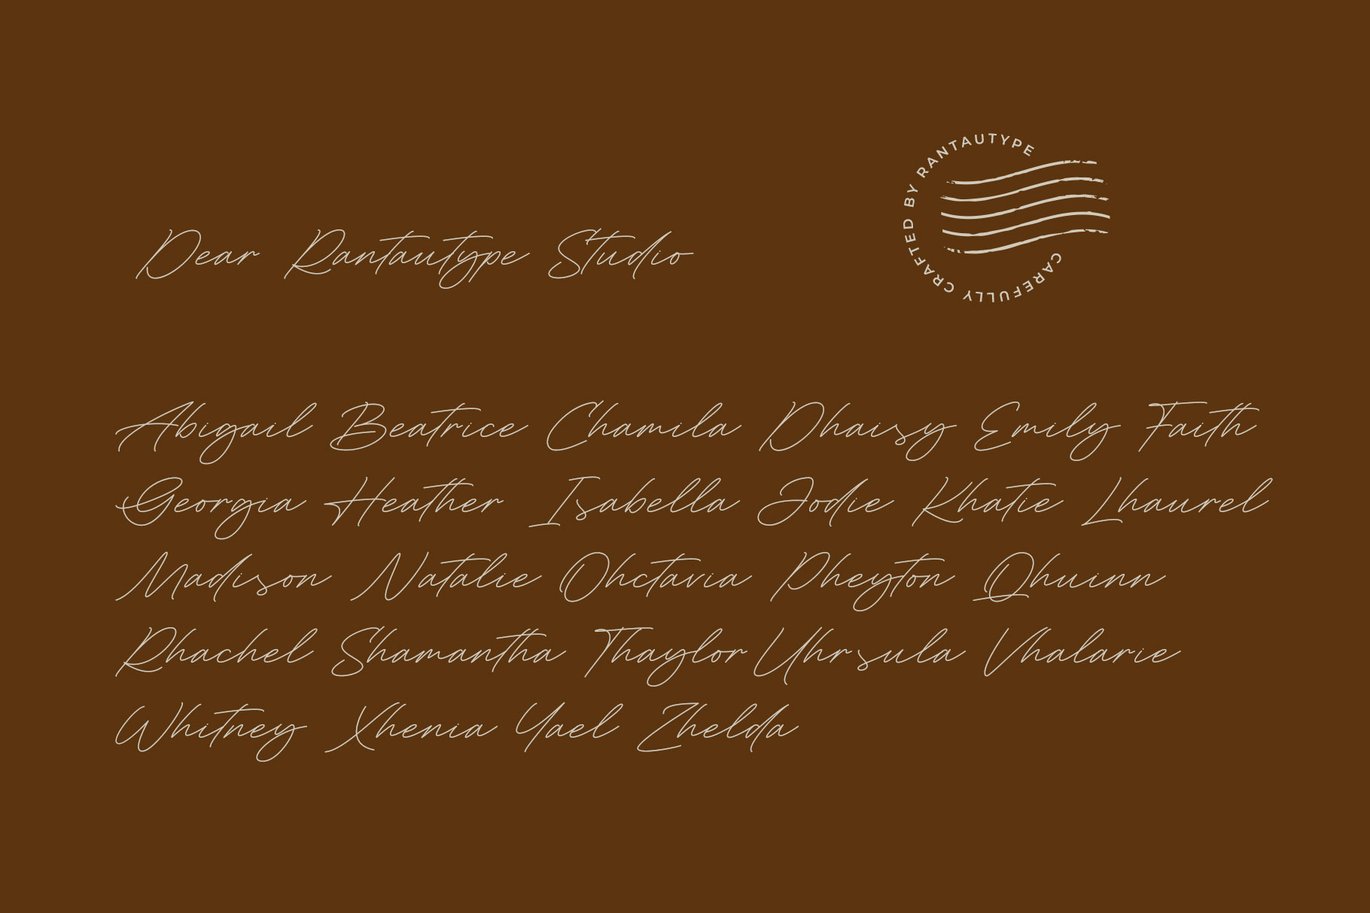 Dear Rantautype Studio
CAREFULLY CRAFTED BY RANTAUTYPE
Abigail Beatrice Chamila Dhaisy Emily Faith
Georgia Heather Isabella Jodie Khatie Lhaurel
Madison Natalie Ohctavia Pheyton Qhuinn
Rhachel Shamantha Thaylor Uhrsula Vhalarie
Whitney Xhenia Yael Zhelda